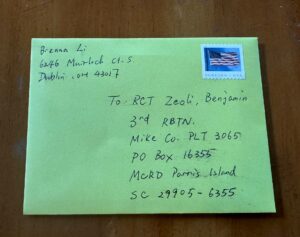 Brenna Li
6246 Muirloch Ct. S.
Dublin, OH 43017
To RCT Zeoli, Benjamin
3rd RBTN.
Mike Co. PLT 3065
PO Box 16355
MCRD Parris Island
SC 29905-6355